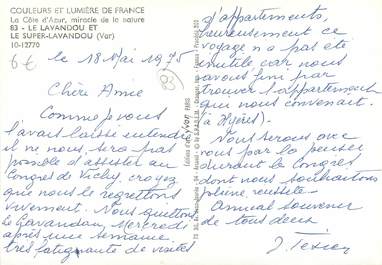 COULEURS ET LUMIÈRE DE FRANCE
La Côte d'Azur, miracle de la nature
83 - LE LAVANDOU ET
LE SUPER-LAVANDOU (Var)
10-12770
6€
le 18 Mai 1975
83
Chère Amie
Comme je vous
l'avais laissé entendre
il ne nous sera pas
possible d'assister au
Congrès de Vichy, croyez
que nous le regrettons
vivement. Nous quittons
le Lavandou Mercredi
après une semaine
très fatigante de visites
d'appartements,
heureusement ce
voyage n'a pas été
inutile car nous
avons fini par
trouver l'appartement
qui nous convenait.
(à Hyères)
Nous serons avec
vous par la pensée
durant le Congrès
dont nous souhaitons
pleine réussite.
Amical souvenir
de tous deux
J. Texier